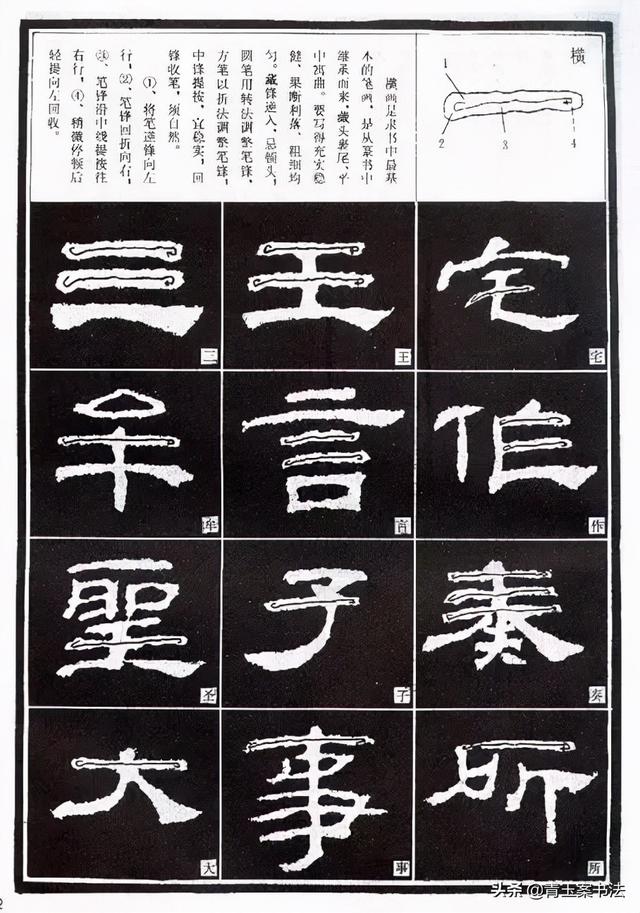 横
1
2
3
4
横画是隶书中最基
本的笔画，是从篆书中
继承而来，藏头裹尾，平
中寓曲。要写得充实稳
健，果断利落，粗细均
匀。藏锋逆入，忌顿头，
圆笔用转法调整笔锋，
方笔以折法调整笔锋，
中锋提按，宜稳实，回
锋收笔，须自然。
①、将笔逆锋向左
行，②、笔锋回折向右，
③、笔锋沿中线提按往
右行，④、稍微停顿后
轻提向左回收。
宅
宅
作
作
奏
奏
所
所
王
王
言
言
子
子
事
事
三
三
牟
牟
聖
圣
大
大
2
头条 @青玉案书法